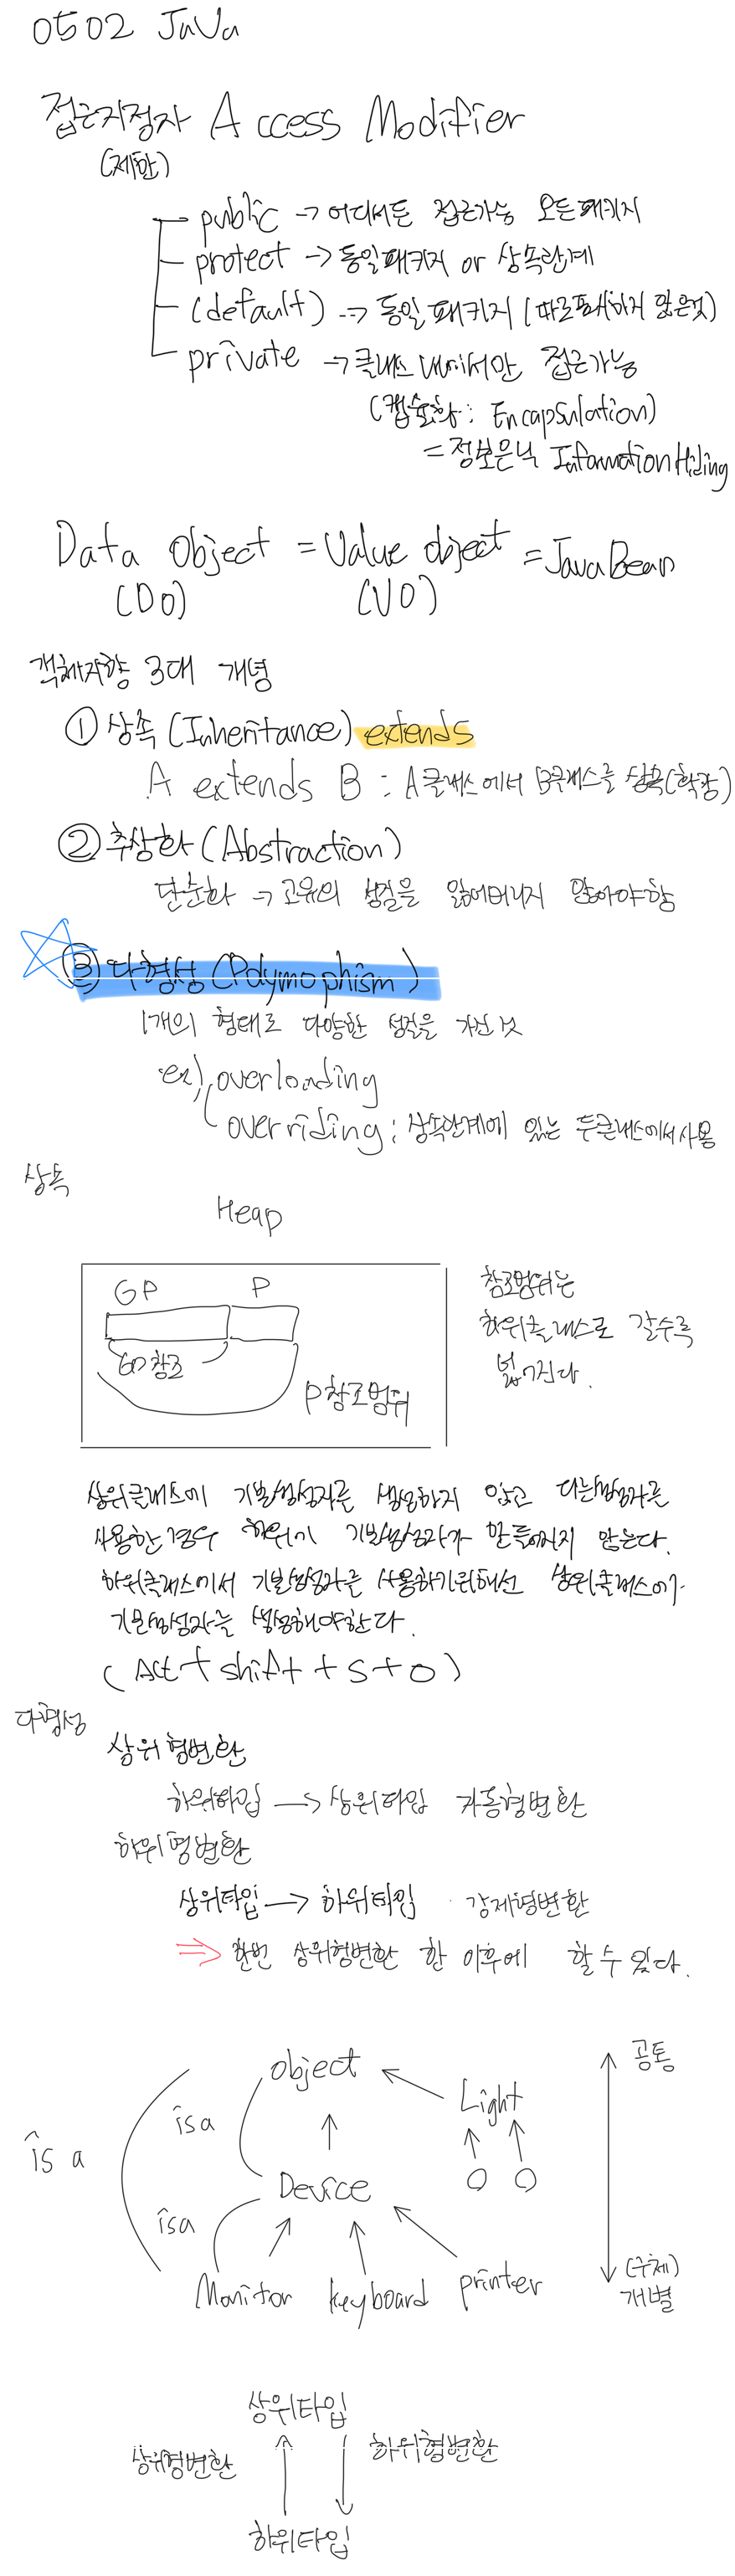 0502 JaVa
접근지정자 Access Modifier
(제한)
public → 어디서든 접근가능 모든패키지
protect → 동일패키지 or 상속관계
(default) → 동일패키지 (따로표시하지 않은것)
private → 클래스 내에서만 접근가능
(캡슐화: Encapsulation)
= 정보은닉 Information Hiding
Data Object = Value object = JavaBean
(DO) (VO)
객체지향 3대 개념
① 상속 (Inheritance) extends
A extends B : A클래스에서 B클래스를 상속(확장)
② 추상화 (Abstraction)
단순화 → 고유의 성질을 잃어버리지 않아야함
③ 다형성 (Polymophism)
1개의 형태로 다양한 성질을 가진 것
ex) overloading
overriding : 상속관계에 있는 두클래스에서 사용
상속
Heap
GP P
GP참조
P참조범위
참조범위는
하위클래스로 갈수록
넓어진다.
상위클래스에 기본생성자를 생성하지 않고 다른생성자를
사용한 경우 하위에 기본생성자가 만들어지지 않는다.
하위클래스에서 기본생성자를 사용하기위해선 상위클래스에
기본생성자를 생성해야한다.
(Alt + shift + S + O)
다형성
상위형변환
하위타입 → 상위타입 자동형변환
하위형변환
상위타입 → 하위타입 강제형변환
⇒ 한번 상위형변환 한 이후에 할 수 있다.
object
공통
Light
is a
is a
Device
is a
(구체)
Monitor keyboard printer
개별
상위타입
상위형변환 하위형변환
하위타입